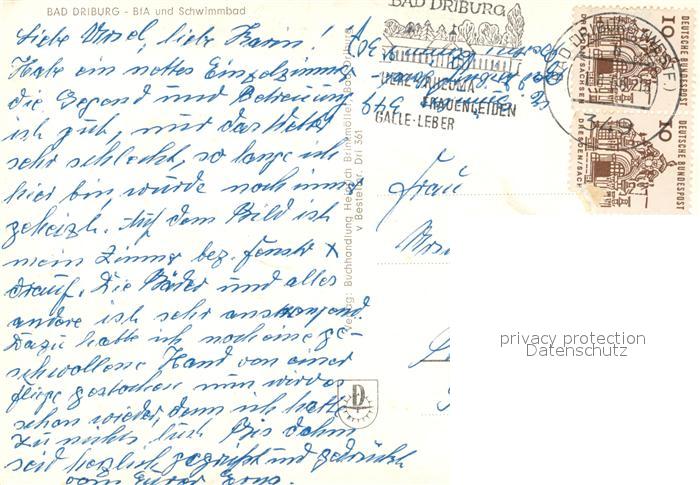 BAD DRIBURG - BfA und Schwimmbad
Liebe Ursel, liebe Karin!
Habe ein nettes Einzelzimmer
die Gegend und Betreuung
ist gut, nur das Wetter
sehr schlecht, so lange ich
hier bin, wurde noch immer
geheizt. Auf dem Bild ist
mein Zimmer bez. Fenster x
drauf. Die Bäder und alles
andere ist sehr anstrengend.
Dazu hatte ich noch eine ge-
schwollene Hand von einer
Fliege gestochen nun wird es
schon wieder, denn ich hatte
zu nichts Lust. Bis dahin
seid herzlich gegrüßt und gedrückt
von Eurer Erna.
Verlag: Buchhandlung Heinrich Brinkmöller, Bad Driburg
v Bestellnr. Dri 361
BAD DRIBURG
HERZ RHEUMA
FRAUENLEIDEN
GALLE-LEBER
BAD DRIBURG (WESTF)
349
DEUTSCHE BUNDESPOST
10
DRESDEN/SACHSEN
DEUTSCHE BUNDESPOST
10
DRESDEN/SACHSEN
349
Frau
D
privacy protection
Datenschutz